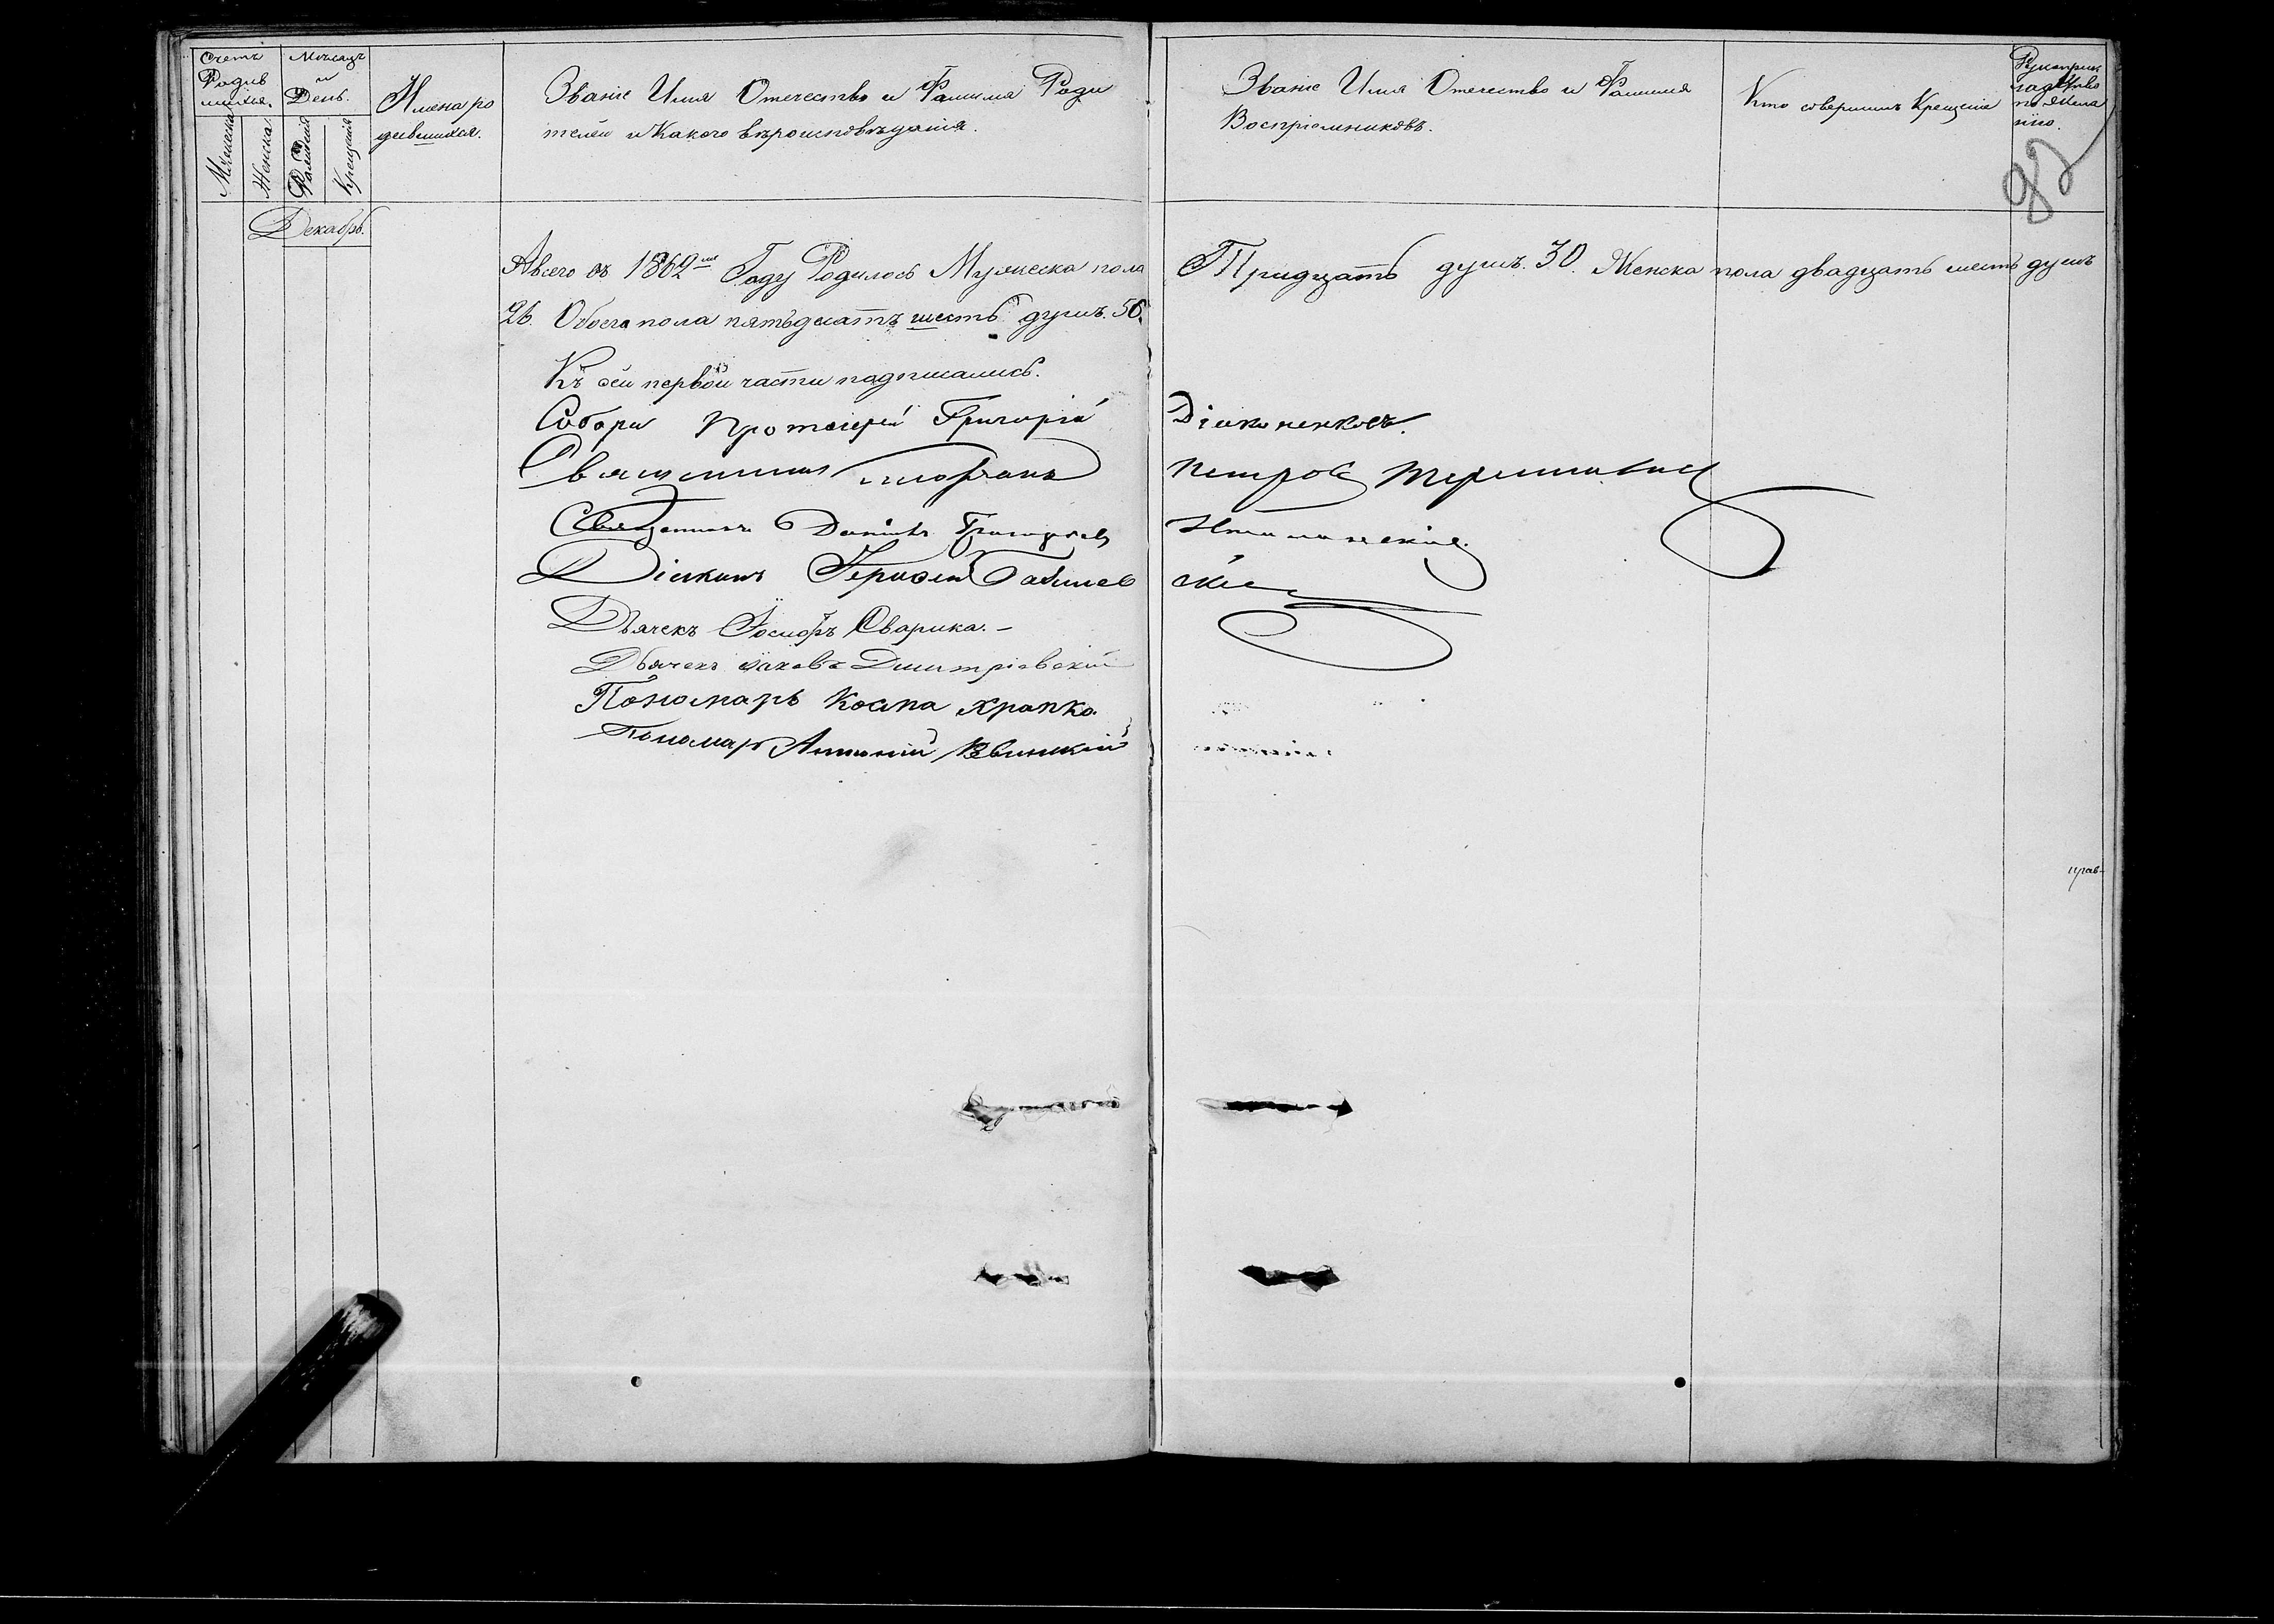 Счетъ
Родив
шихся.
Мѣсяцъ
и
День.
Мужеска
Женска
Рожденія
Крещенія
Имена ро
дившихся.
Званіе Имя Отечество и Фамилія Роди
телей и Какого вѣроисповѣданія.
Званіе Имя Отечество и Фамилія
Воспріемниковъ.
Кто совершилъ Крещеніе
Рукоприк
ладство
по Жела
нію.
Декабрь.
А всего въ 1862мъ Году Родилось Мужеска пола Тридцать душъ. 30. Женска пола двадцать шесть душъ
26. Обоего пола пятьдесятъ шесть душъ. 56.
Къ сей первой части подписались.
Собора Протоіерей Григорій Діаконенковъ.
Священникъ Петровъ
Священникъ Даніилъ Григорьевъ
Діаконъ
Дьячекъ Іосифъ Сварика.-
Дьячекъ Іаковъ Димитріевскій
Пономарь Косма Храпко.
Пономарь Антоній Квинцкій